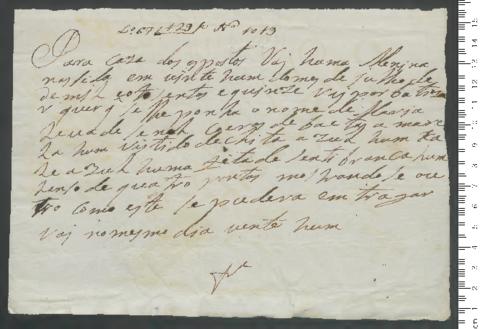 Nº 1013
Para caza dos spostos Vai huma Menina
nasçida em vinte hum do mes de julho de
de mil e oito sentos e quinze Vai por batizar
e quer q̃ se lhe ponha o nome de Maria
Leva de se hum Coeyro de baeta amare
la hum vistido de chita azul hum
azul huma de branca hum
lenso de quatro pontos mostrando se ou
tro como este se podera emtregar
Vai no mesmo dia vente hum